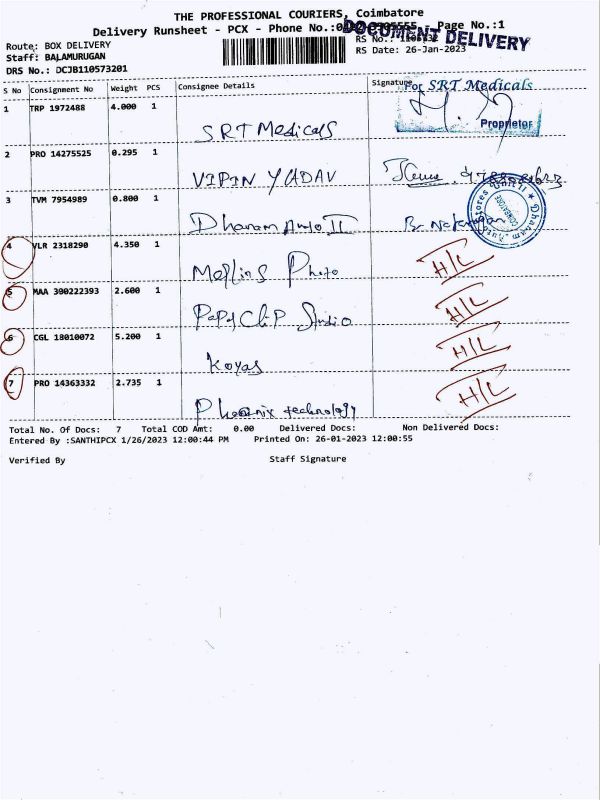 THE PROFESSIONAL COURIERS, Coimbatore
Delivery Runsheet - PCX - Phone No.: Page No.:1
DOCUMENT DELIVERY
Route: BOX DELIVERY
RS No.:
Staff: BALAMURUGAN
RS Date: 26-Jan-2023
DRS No.: DCJB110573201
S No Consignment No Weight PCS Consignee Details Signature
For SRT Medicals
1 TRP 1972488 4.000 1
SRT Medicals
Proprietor
2 PRO 14275525 0.295 1
VIPIN YADAV
3 TVM 7954989 0.800 1
Dhanam Auto II
4 VLR 2318290 4.350 1
Photo H/L
5 MAA 390222393 2.600 1
Studio H/L
6 CGL 18010072 5.200 1
Koyas H/L
7 PRO 14363332 2.735 1
Phoenix technology H/L
Total No. Of Docs: 7 Total COD Amt: 0.00 Delivered Docs: Non Delivered Docs:
Entered By :SANTHIPCX 1/26/2023 12:00:44 PM Printed On: 26-01-2023 12:00:55
Verified By Staff Signature